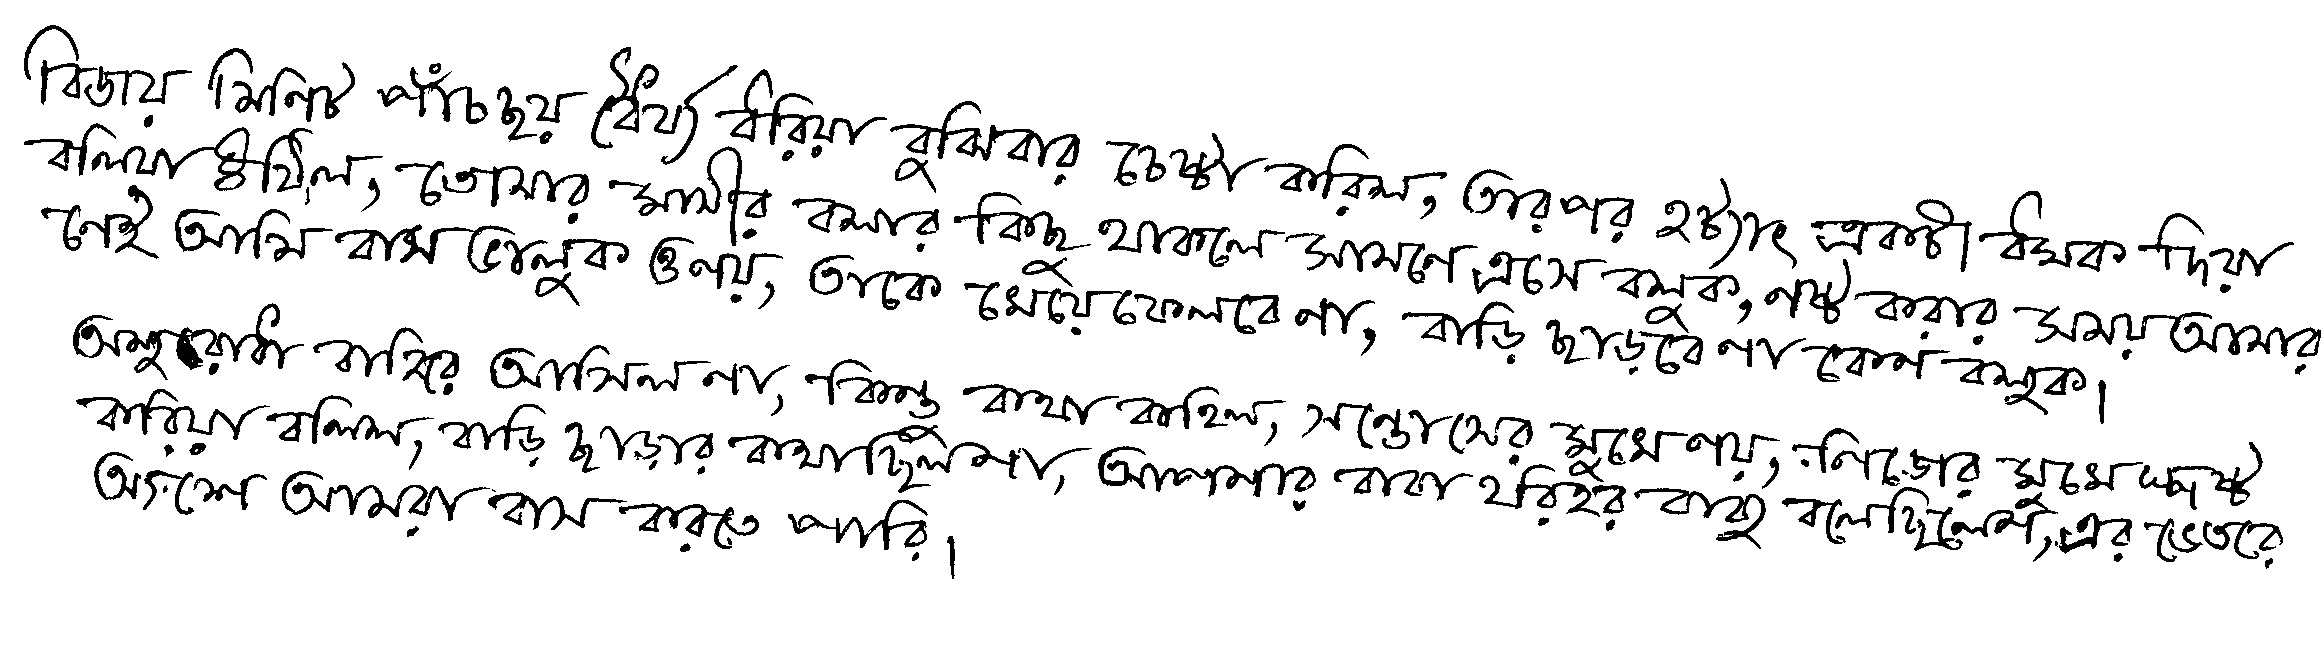 বিজয় মিনিট পাঁচছয় ধৈর্য্য ধরিয়া বুঝিবার চেষ্টা করিল, তারপর হঠাৎ একটা ধমক দিয়া
বলিয়া উঠিল, তোমার মাসীর বলার কিছু থাকলে সামনে এসে বলুক, নষ্ট করার সময় আমার
নেই আমি বাঘ ভালুক ও নয়, তাকে খেয়ে ফেলবে না, বাড়ি ছাড়বে না কেন বলুক।
অনুরাধা বাহির আসিল না, কিন্তু কথা কহিল, সন্তোষের মুখে নয়, নিজের মুখে স্পষ্ট
করিয়া বলিল, বাড়ি ছাড়ার কথা ছিল না, আপনার বাবা হরিহর বাবু বলেছিলেন, এর ভেতরে
অংশে আমরা বাস করতে পারি।